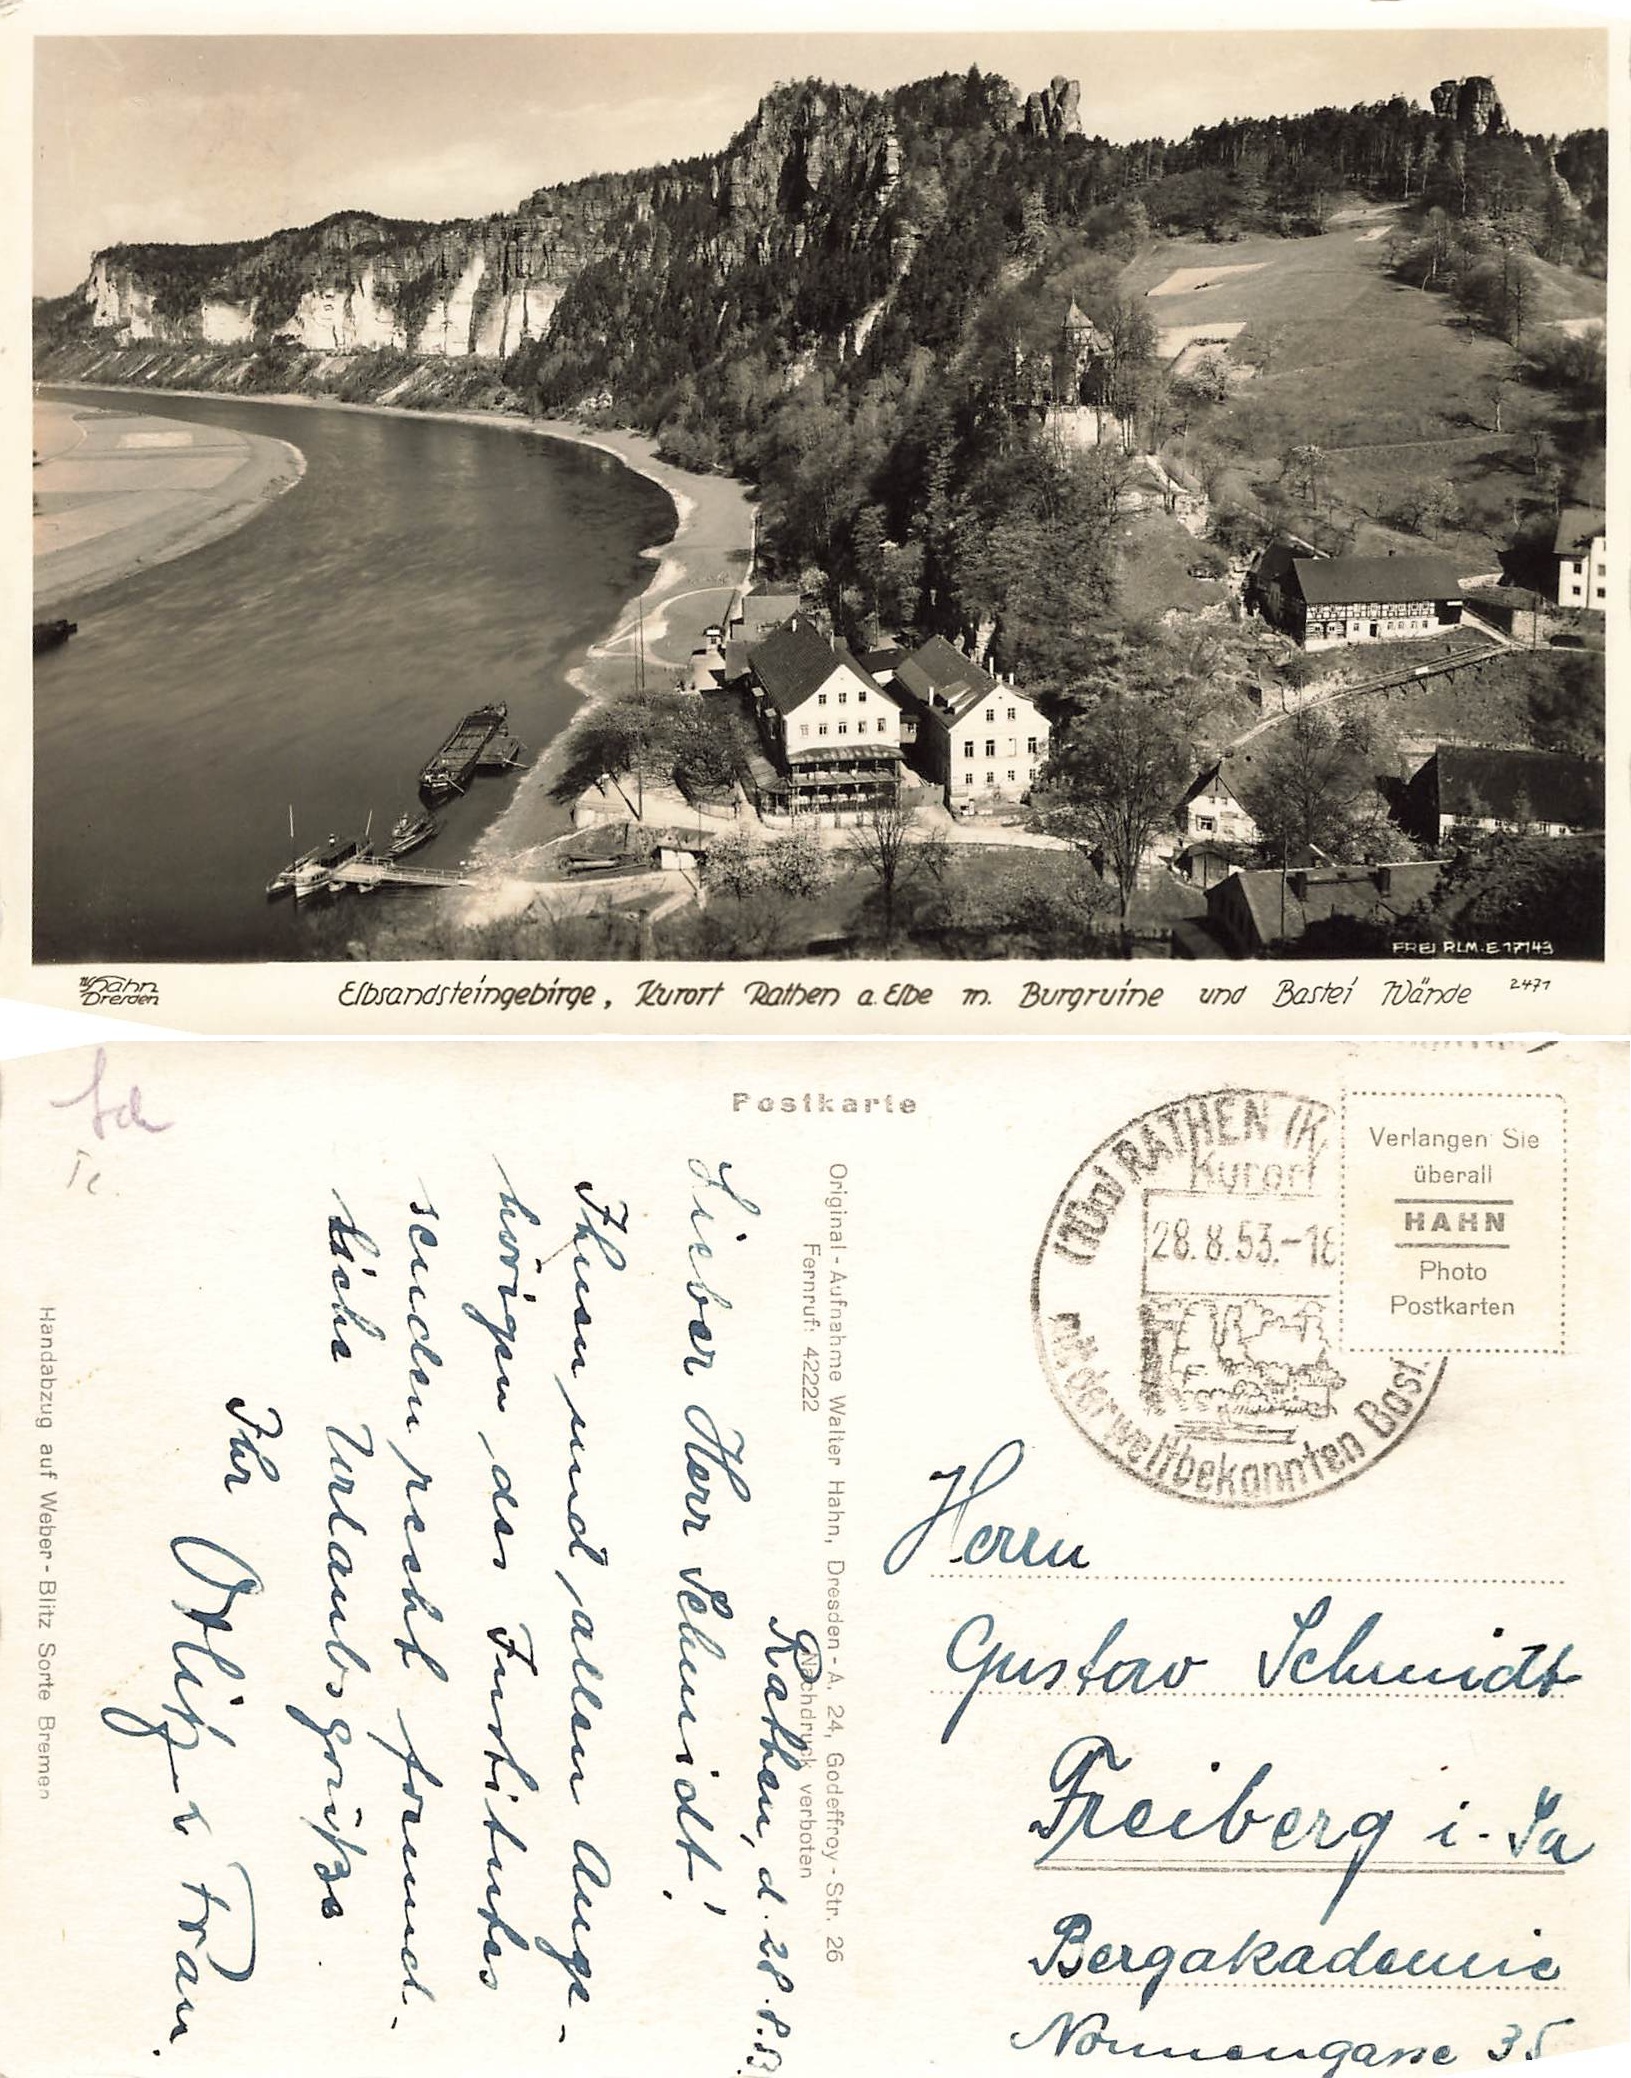 FREI RLM.E 17143
W. Hahn
Dresden
Elbsandsteingebirge, Kurort Rathen a. Elbe m. Burgruine und Bastei Wände 2471
Postkarte
RATHEN
Kurort
28.8.53.-18
der weltbekannten Bast
Verlangen Sie
überall
HAHN
Photo
Postkarten
Original-Aufnahme Walter Hahn, Dresden-A. 24, Godeffroy-Str. 26
Fernruf: 42222 Nachdruck verboten
Rathen, d. 28.8.53
Lieber Herr Schmidt!
Ihnen und allen Ange-
hörigen des Institutes
senden recht freund-
liche Urlaubsgrüße
Ihr
u Frau.
Handabzug auf Weber-Blitz Sorte Bremen
Herrn
Gustav Schmidt
Freiberg i. Sa
Bergakademie
Nonnengasse 35